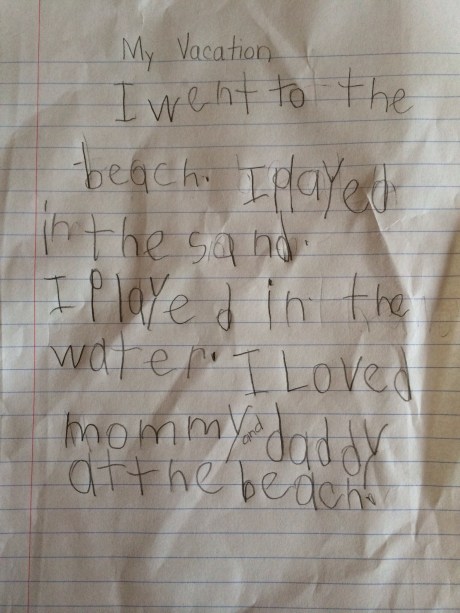 My Vacation
I went to the
beach. I played
in the sand.
I played in the
water. I Loved
mommy and daddy
at the beach.